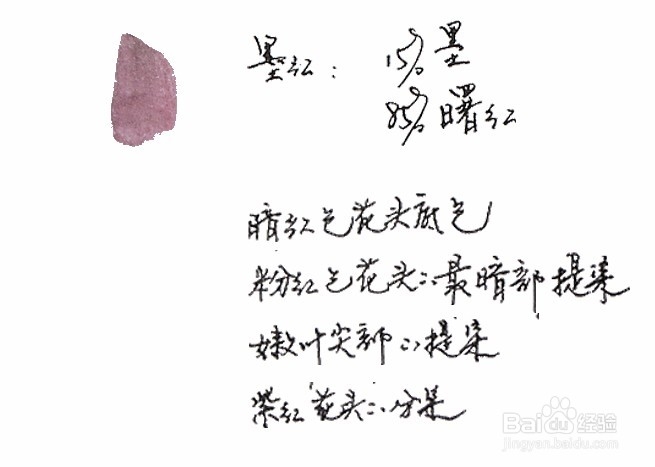 墨红: 15% 墨
85% 曙红
暗红色花头底色
粉红色花头㆓最暗部提染
嫩叶尖部㆓提染
紫红花头㆓分染
Bai du 经验
jingyan.baidu.com